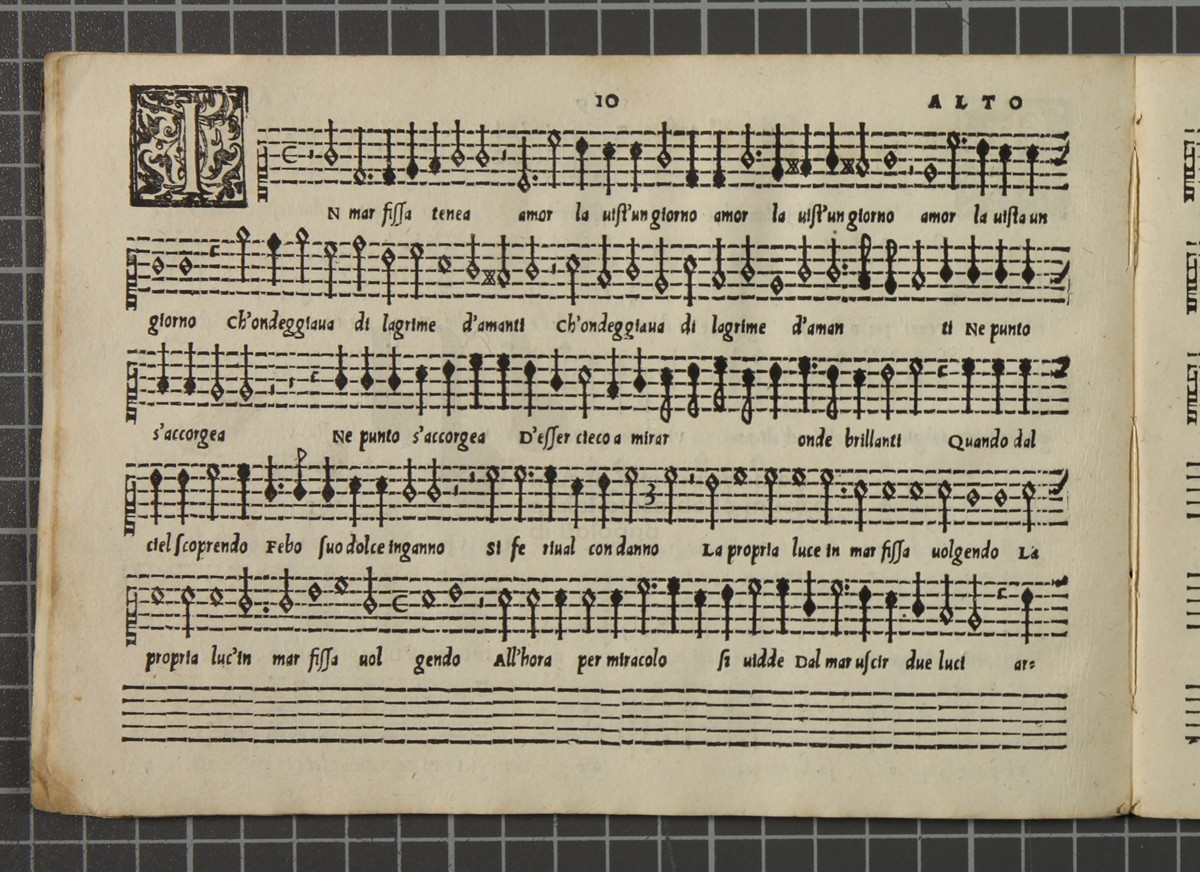 10
ALTO
IN mar fissa tenea amor la uist'un giorno amor la uist'un giorno amor la uista un
giorno Ch'ondeggiaua di lagrime d'amanti Ch'ondeggiaua di lagrime d'aman ti Ne punto
s'accorgea Ne punto s'accorgea D'esser cieco a mirar onde brillanti Quando dal
ciel scoprendo Febo suo dolce inganno Si fe riual con danno La propria luce in mar fissa uolgendo La
propria luc'in mar fissa uol gendo All'hora per miracolo si uidde Dal mar uscir due luci ar=